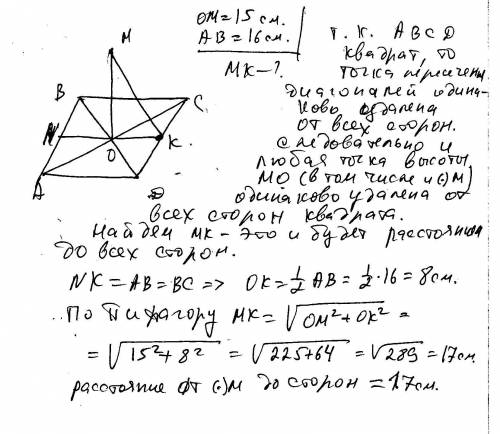 M
B
C
N
O
K
A
D
OM = 15 см.
AB = 16 см.
MK – ?
Т. К. ABCD
квадрат, то
точка пересечени
диагоналей одина-
ково удалена
от всех сторон.
следовательно и
любая точка высоты
MO (в том числе и (·) M)
одинаково удалена от
всех сторон квадрата.
Найдем MK – это и будет расстояни
до всех сторон.
NK = AB = BC => OK = 1/2 AB = 1/2 · 16 = 8 см.
По Пифагору MK = √(OM² + OK²) =
= √(15² + 8²) = √(225 + 64) = √289 = 17 см
расстояние от (·) M до сторон = 17 см.